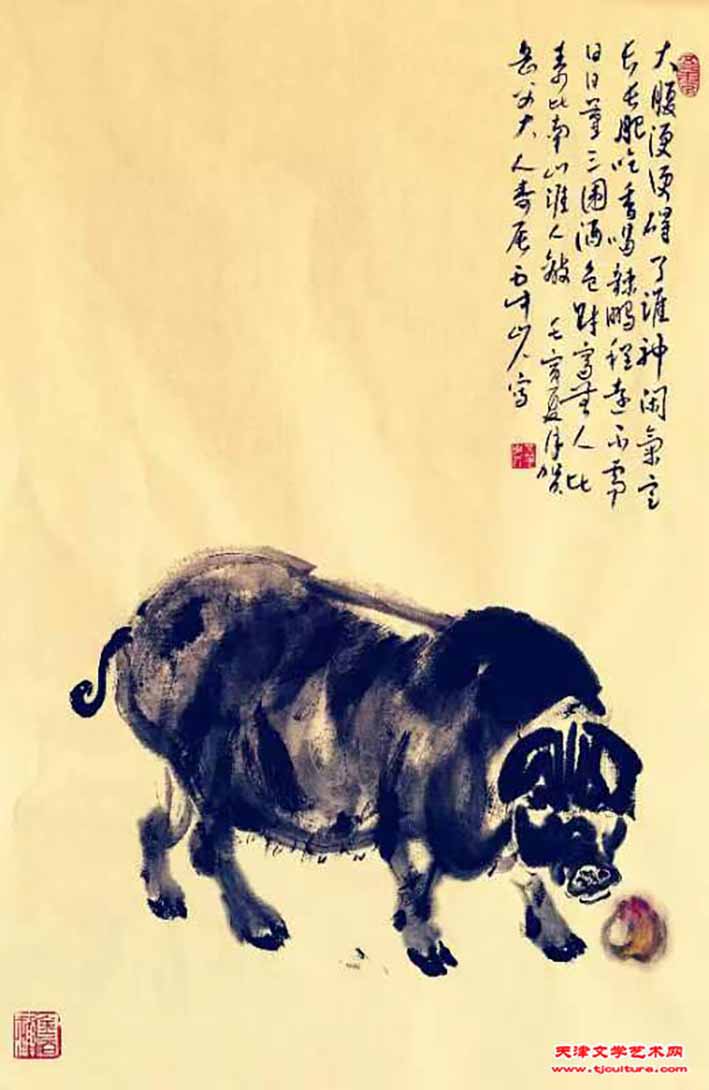 大腹便便碍了谁神闲氣定
长长肥吃香喝辣鹏程远不需
日日量三围酒色财富無人比
寿比南山谁人敌 壬寅夏月贺
岳父大人寿辰 山人写
天津文学艺术网
www.tjculture.com